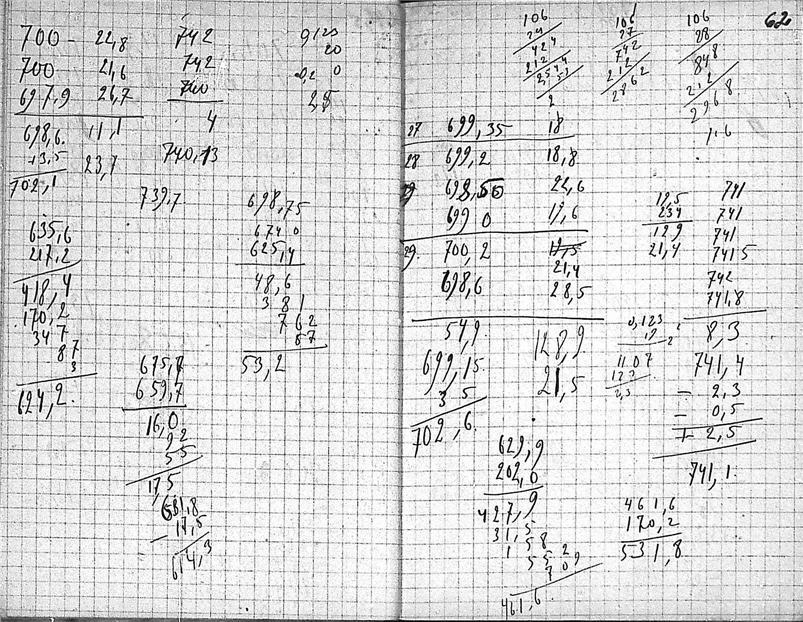 700 - 22,8
700 21,6
697,9 26,7
698,6. 11,1
13,5 23,7
702,1
635,6
217,2
418,4
170,2
34 7
8 7
3
624,2.
742
742
740
4
740,13
739,7
675,7
659,7
16,0
9 2
5 5
17,5
631,8
17,5
614,3
9123
20
0,2 0
2,5
698,75
674 0
625,4
48,6
3 8 1
7 6 2
8 7
53,2
62
106
24
424
212
2
106
27
742
212
2862
106
28
848
212
2968
1,6
27 699,35 18
28 699,2 18,8
29 698,50 22,6
699 0 19,6
29. 700,2 19,5
21,4
698,6 28,5
54,9. 128,9
699,15 21,5
3 5
702,6.
629,9
202,0
427,9
31,5
1 5 8
5 5 2
7 0 9
461,6
19,5
234
129
21,4
0,123
19
1107
123
2,3
741
741
741
741 5
742
741,8
8,3
741,4
- 2,3
- 0,5
+ 2,5
741,1.
461,6
170,2
531,8